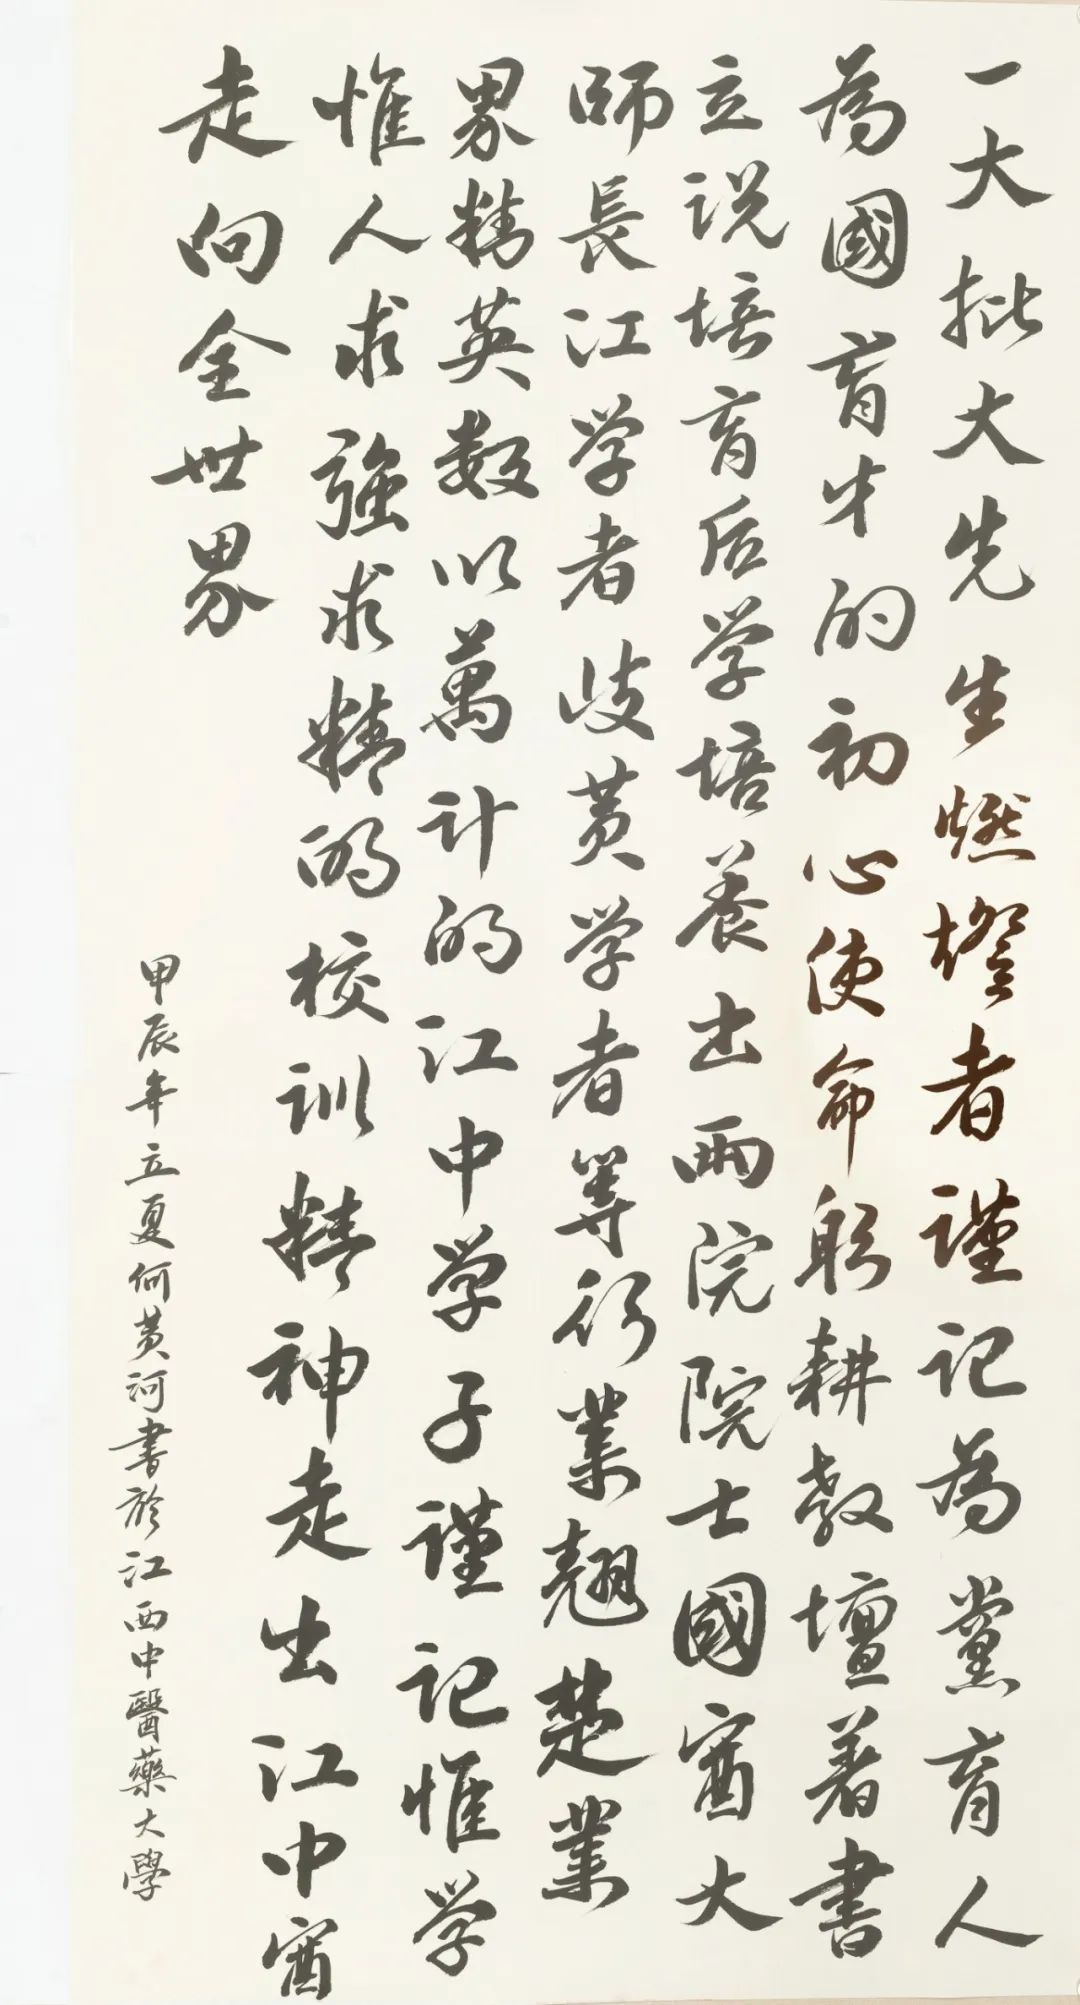 一大批大先生燃燈者谨记為黨育人
為國育才的初心使命躬耕教壇著書
立说培育后学培養出兩院院士國医大
師長江学者岐黄学者等行業翘楚業
界精英数以萬计的江中学子谨记惟学
惟人求強求精的校训精神走出江中医
走向全世界
甲辰年立夏何黄河書於江西中醫藥大學